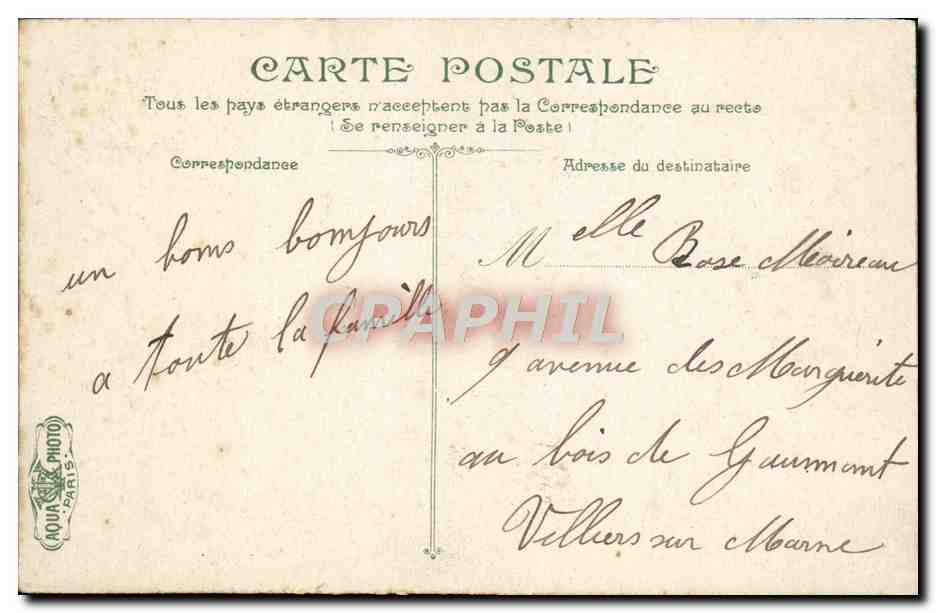 CARTE POSTALE
Tous les pays étrangers n'acceptent pas la Correspondance au recto
(Se renseigner à la Poste)
Correspondance
un bons bomjours
a toute la famille
Adresse du destinataire
Melle Rose Méoireau
9 avenue des Marguerite
au bois de Gaumont
Villiers sur Marne
CPAPHIL
AQUA PHOTO
PARIS